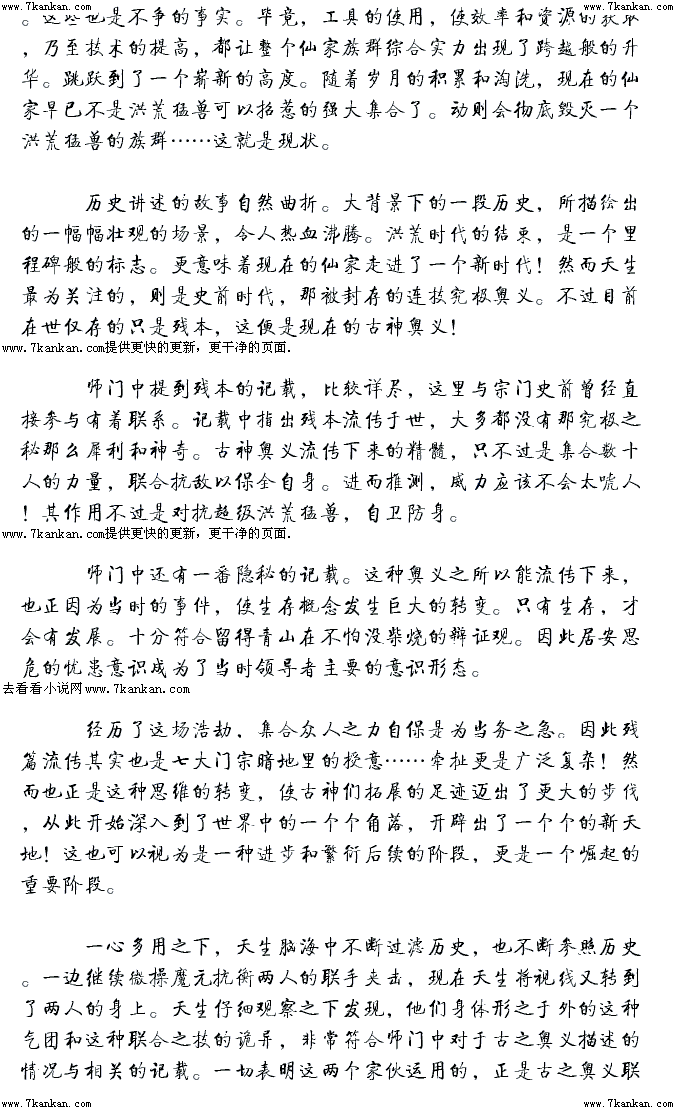 www.7kankan.com www.7kankan.com
。这些也是不争的事实。毕竟，工具的使用，使效率和资源的获取
，乃至技术的提高，都让整个仙家族群综合实力出现了跨越般的升
华。跳跃到了一个崭新的高度。随着岁月的积累和淘洗，现在的仙
家早已不是洪荒猛兽可以招惹的强大集合了。动则会彻底毁灭一个
洪荒猛兽的族群……这就是现状。
历史讲述的故事自然曲折。大背景下的一段历史，所描绘出
的一幅幅壮观的场景，令人热血沸腾。洪荒时代的结束，是一个里
程碑般的标志。更意味着现在的仙家走进了一个新时代！然而天生
最为关注的，则是史前时代，那被封存的连技究极奥义。不过目前
在世仅存的只是残本，这便是现在的古神奥义！
www.7kankan.com提供更快的更新，更干净的页面.
师门中提到残本的记载，比较详尽，这里与宗门史前曾经直
接参与有着联系。记载中指出残本流传于世，大多都没有那究极之
秘那么犀利和神奇。古神奥义流传下来的精髓，只不过是集合数十
人的力量，联合抗敌以保全自身。进而推测，威力应该不会太唬人
！其作用不过是对抗超级洪荒猛兽，自卫防身。
www.7kankan.com提供更快的更新，更干净的页面.
师门中还有一番隐秘的记载。这种奥义之所以能流传下来，
也正因为当时的事件，使生存概念发生巨大的转变。只有生存，才
会有发展。十分符合留得青山在不怕没柴烧的辩证观。因此居安思
危的忧患意识成为了当时领导者主要的意识形态。
去看看小说网www.7kankan.com
经历了这场浩劫，集合众人之力自保是为当务之急。因此残
篇流传其实也是七大门宗暗地里的授意……牵扯更是广泛复杂！然
而也正是这种思维的转变，使古神们拓展的足迹迈出了更大的步伐
，从此开始深入到了世界中的一个个角落，开辟出了一个个的新天
地！这也可以视为是一种进步和繁衍后续的阶段，更是一个崛起的
重要阶段。
一心多用之下，天生脑海中不断过滤历史，也不断参照历史
。一边继续微操魔元抗衡两人的联手夹击，现在天生将视线又转到
了两人的身上。天生仔细观察之下发现，他们身体形之于外的这种
气团和这种联合之技的诡异，非常符合师门中对于古之奥义描述的
情况与相关的记载。一切表明这两个家伙运用的，正是古之奥义联
www.7kankan.com www.7kankan.com